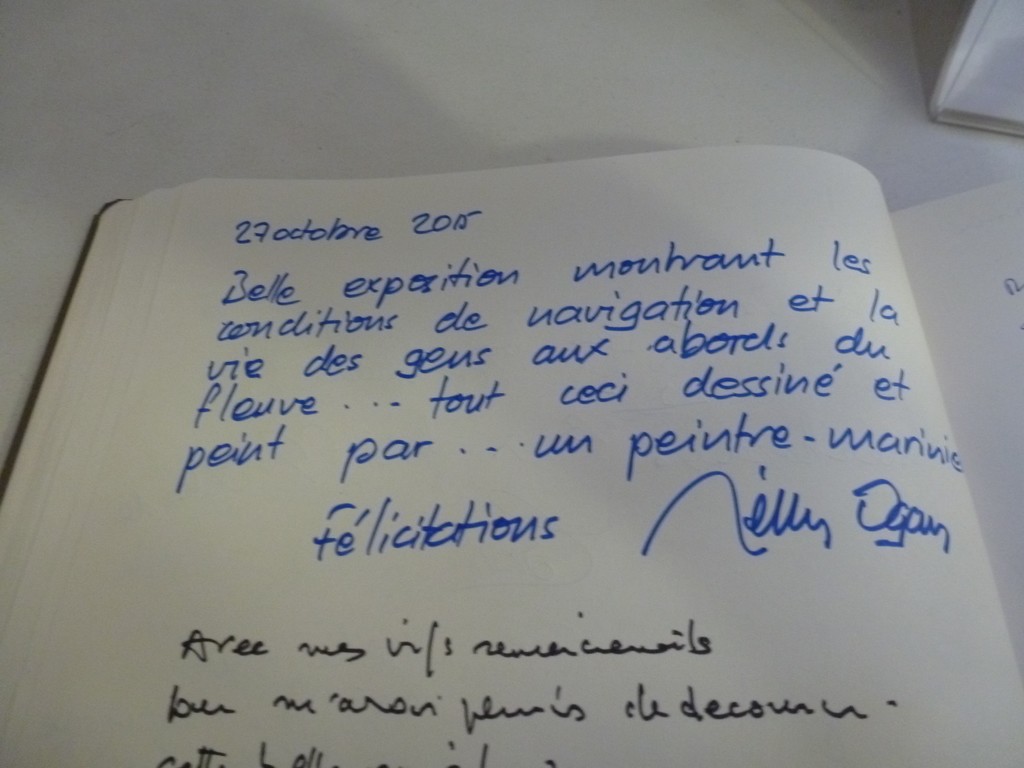 27 octobre 2015
Belle exposition montrant les
conditions de navigation et la
vie des gens aux abords du
fleuve ... tout ceci dessiné et
peint par ... un peintre-marinie
Félicitations
Avec mes vifs remerciements
pour m'avoir permis de decouvrir
cette belle